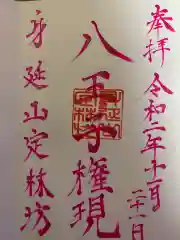 奉拝
令和二年十一月
二十一日
八王子権現
身延山定林坊